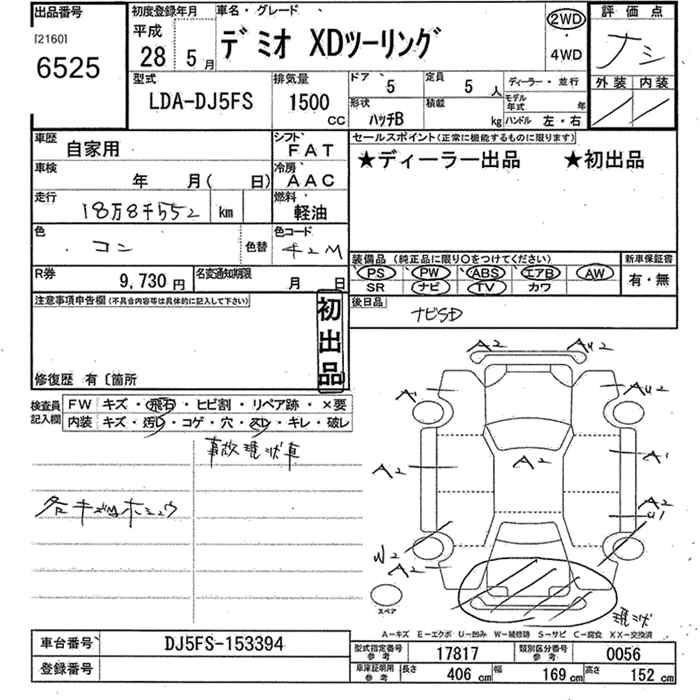 出品番号 初度登録年月 車名・グレード 評価点
[2160] 平成
6525 28 5月 デミオ XDツーリング 2WD・4WD ナシ
型式 排気量 ドア 5 定員 5人 ディーラー・並行 外装 内装
LDA-DJ5FS 1500cc 形状 ハッチB 積載 kg モデル年式 年 ハンドル 左・右
車歴 自家用 シフト FAT セールスポイント(正常に機能するものに限ります)
車検 年 月( 日) 冷房 AAC ★ディーラー出品 ★初出品
走行 18万8千552 km 燃料 軽油
色 コン 色替 色コード 42M
装備品(純正品に限り○をつけてください) 新車保証書
R券 9,730円 名変通知期限 月 日 PS PW ABS エアB AW 有・無
SR ナビ TV カワ
注意事項申告欄(不具合内容等は具体的に記入して下さい) 初出品 後日品
ナビSD
修復歴 有〔箇所
検査員記入欄 FW キズ・飛石・ヒビ割・リペア跡・×要
内装 キズ・汚レ・コゲ・穴・スレ・キレ・破レ
事故現状車
A2 AU2
A1 AU2
A2 A2 A1
A2
U1
W2
A2
スペア
現状
A-キズ E-エクボ U-凹み W-補修跡 S-サビ C-腐食 XX-交換済
車台番号 DJ5FS-153394 型式指定番号参考 17817 類別区分番号参考 0056
登録番号 車庫証明用参考 長さ 406cm 幅 169cm 高さ 152cm